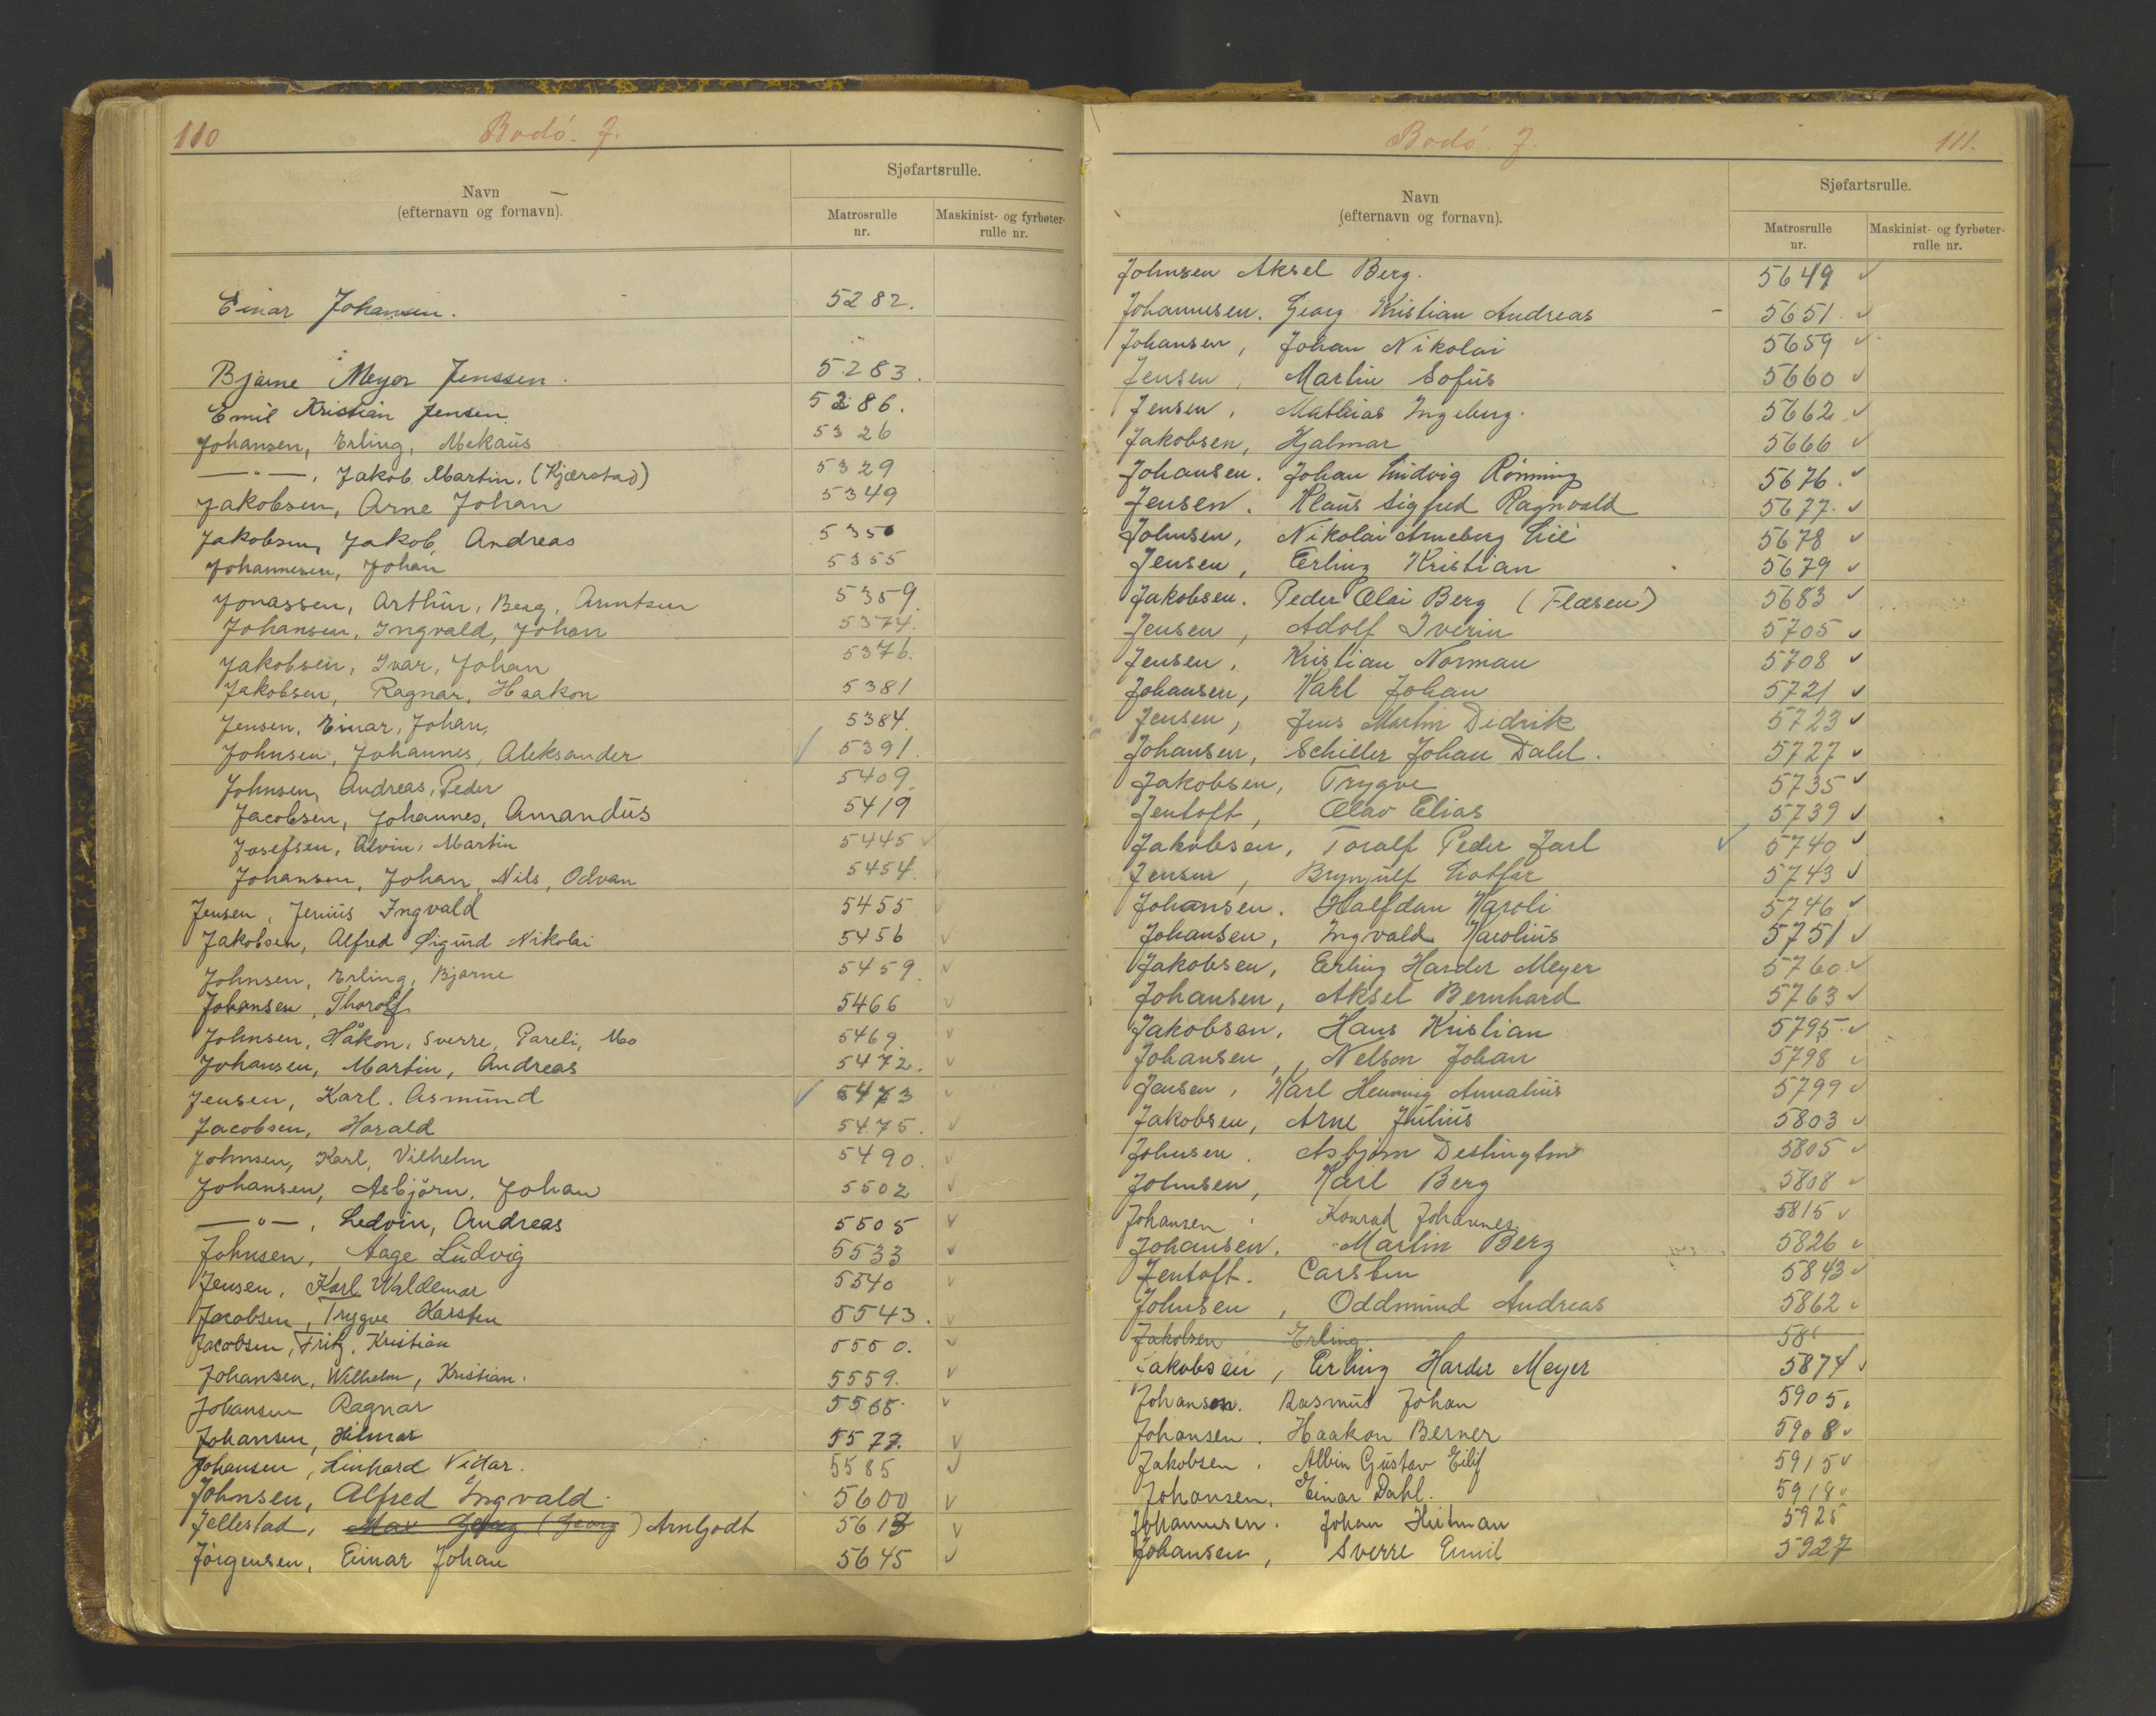 110
Bodö. J.
Navn
(efternavn og fornavn).
Sjøfartsrulle.
Matrosrulle
nr.
Maskinist- og fyrbøter-
rulle nr.
Einar Johansen. 5282.
Bjarne Meyer Jenssen. 5283.
Emil Kristian Jensen 5286.
Johansen, Erling, Mekaus 5326
—"—, Jakob Martin. (Kjærstad) 5329
Jakobsen, Arne Johan 5349
Jakobsen, Jakob, Andreas 5350
Johannesen, Johan 5355
Jonassen, Arthur, Berg, Arntsen 5359.
Johansen, Ingvald, Johan 5374.
Jakobsen, Ivar, Johan 5376.
Jakobsen, Ragnar, Haakon 5381
Jensen, Einar, Johan, 5384.
Johnsen, Johannes, Aleksander ✓ 5391.
Johnsen, Andreas, Peder 5409.
Jacobsen, Johannes, Amandus 5419
Josefsen, Alvin, Martin 5445 ✓
Johansen, Johan, Nils, Odvan 5454.
Jensen, Jenius Ingvald 5455
Jakobsen, Alfred Sigurd Nikolai 5456 ✓
Johnsen, Erling, Bjarne 5459. ✓
Johansen, Thorolf 5466 ✓
Johnsen, Håkon, Sverre, Pareli, Mo 5469. ✓
Johansen, Martin, Andreas 5472. ✓
Jensen, Karl. Asmund ✓ 5473 ✓
Jacobsen, Harald 5475. ✓
Johnsen, Karl, Vilhelm 5490. ✓
Johansen, Asbjörn, Johan 5502 ✓
—"—, Ledvin, Andreas 5505 ✓
Johnsen, Aage Ludvig 5533 ✓
Jensen, Karl Waldemar 5540 ✓
Jacobsen, Trygve Karsten 5543. ✓
Jacobsen, Fritz, Kristian 5550. ✓
Johansen, Wilhelm, Kristian. 5559. ✓
Johansen Ragnar 5565. ✓
Johansen, Hilmar 5577. ✓
Johansen, Linhard Vidar. 5585 ✓
Johnsen, Alfred Ingvald. 5600 ✓
Jellestad, Max Georg (Georg) Arnljodt 5613 ✓
Jörgensen, Einar Johan 5645 ✓
Bodö. J.
111.
Navn
(efternavn og fornavn).
Sjøfartsrulle.
Matrosrulle
nr.
Maskinist- og fyrbøter-
rulle nr.
Johnsen Aksel Berg. 5649 ✓
Johannesen. Georg Kristian Andreas - 5651 ✓
Johansen, Johan Nikolai 5659 ✓
Jensen, Martin Sofus 5660 ✓
Jensen, Mathias Ingeburg. 5662 ✓
Jakobsen, Hjalmar 5666 ✓
Johansen. Johan Ludvig Rönning 5676. ✓
Jensen. Klaus Sigfred Ragnvald 5677. ✓
Johnsen, Nikolai Arneberg Lie 5678 ✓
Jensen, Erling Kristian 5679 ✓
Jakobsen. Peder Olai Berg (Flæsen) 5683 ✓
Jensen, Adolf Iverin 5705 ✓
Jensen, Kristian Norman 5708 ✓
Johansen, Karl Johan 5721 ✓
Jensen, Jens Martin Didrik 5723 ✓
Johansen, Schiller Johan Dahl. 5727 ✓
Jakobsen, Trygve 5735 ✓
Jentoft, Olav Elias 5739 ✓
Jakobsen, Toralf Peder Jarl ✓ 5740 ✓
Jensen, Brynjulf Lotfar 5743 ✓
Johansen. Halfdan Karoli 5746 ✓
Johansen, Ingvald Karolius 5751 ✓
Jakobsen, Erling Harder Meyer 5760 ✓
Johansen, Aksel Bernhard 5763 ✓
Jakobsen, Hans Kristian 5795. ✓
Johansen, Nelson Johan 5798 ✓
Jensen, Karl Henning Annalius 5799 ✓
Jakobsen, Arne Julius 5803 ✓
Johnsen. Asbjörn Destington 5805 ✓
Johnsen, Karl Berg 5808 ✓
Johansen, Konrad Johannes. 5815 ✓
Johansen. Martin Berg 5826 ✓
Jentoft. Carsten 5843 ✓
Johnsen, Oddmund Andreas 5862 ✓
Jakobsen Erling 58
Jakobsen, Erling Harder Meyer 5874 ✓
Johansen. Rasmus Johan 5905.
Johansen. Haakon Berner 5908 ✓
Jakobsen. Albin Gustav Eilif 5915 ✓
Johansen. Einar Dahl. 5918 ✓
Johannesen. Johan Hilman 5925
Johansen, Sverre Emil 5927